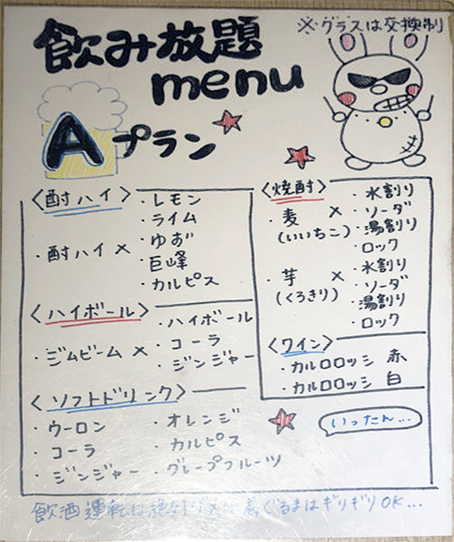 ※グラスは交換制
飲み放題
menu
Aプラン
〈酎ハイ〉
・酎ハイ×
・レモン
・ライム
・ゆず
・巨峰
・カルピス
〈ハイボール〉
・ジムビーム×
・ハイボール
・コーラ
・ジンジャー
〈ソフトドリンク〉
・ウーロン
・コーラ
・ジンジャー
・オレンジ
・カルピス
・グレープフルーツ
〈焼酎〉
・麦 ×
(いいちこ)
・水割り
・ソーダ
・湯割り
・ロック
・芋 ×
(くろきり)
・水割り
・ソーダ
・湯割り
・ロック
〈ワイン〉
・カルロロッシ 赤
・カルロロッシ 白
いったん…
飲酒運転は絶対ダメ ぐるまはギリギリOK…